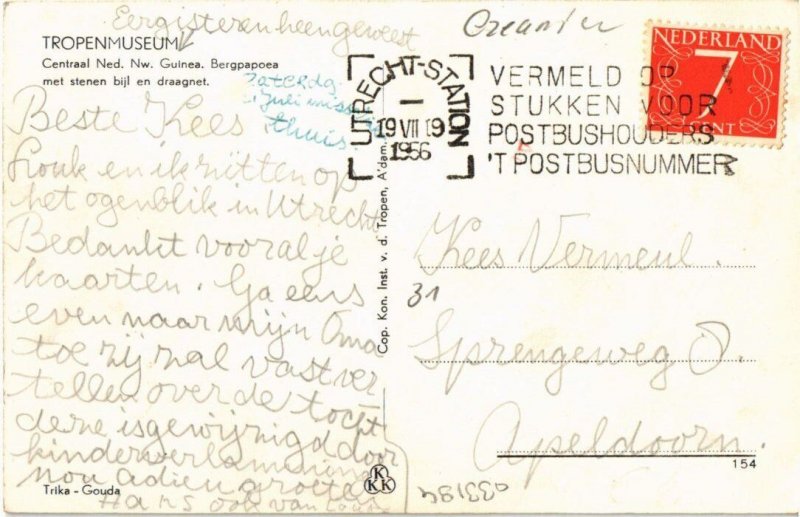 Eergisteren heengeweest
TROPENMUSEUM
Centraal Ned. Nw. Guinea. Bergpapoea
met stenen bijl en draagnet.
Zaterda
Juli
thuis
Beste Kees
Louk en ik zitten op
het ogenblik in Utrecht
Bedankt vooral je
kaarten. Ga eens
even naar mijn Oma
toe zij zal vast ver
tellen over de tocht
deze is gewijzigd door
kinderverlamming
nou adieu groeten
Hans ook van Louk
Trika - Gouda
Cop. Kon. Inst. v. d. Tropen, A'dam.
KKK
UTRECHT-STATION
19 VII 19
1956
VERMELD OP
STUKKEN VOOR
POSTBUSHOUDERS
'T POSTBUSNUMMER
NEDERLAND
7
CENT
Kees Vermeul.
31
Sprengeweg 8.
Apeldoorn.
154